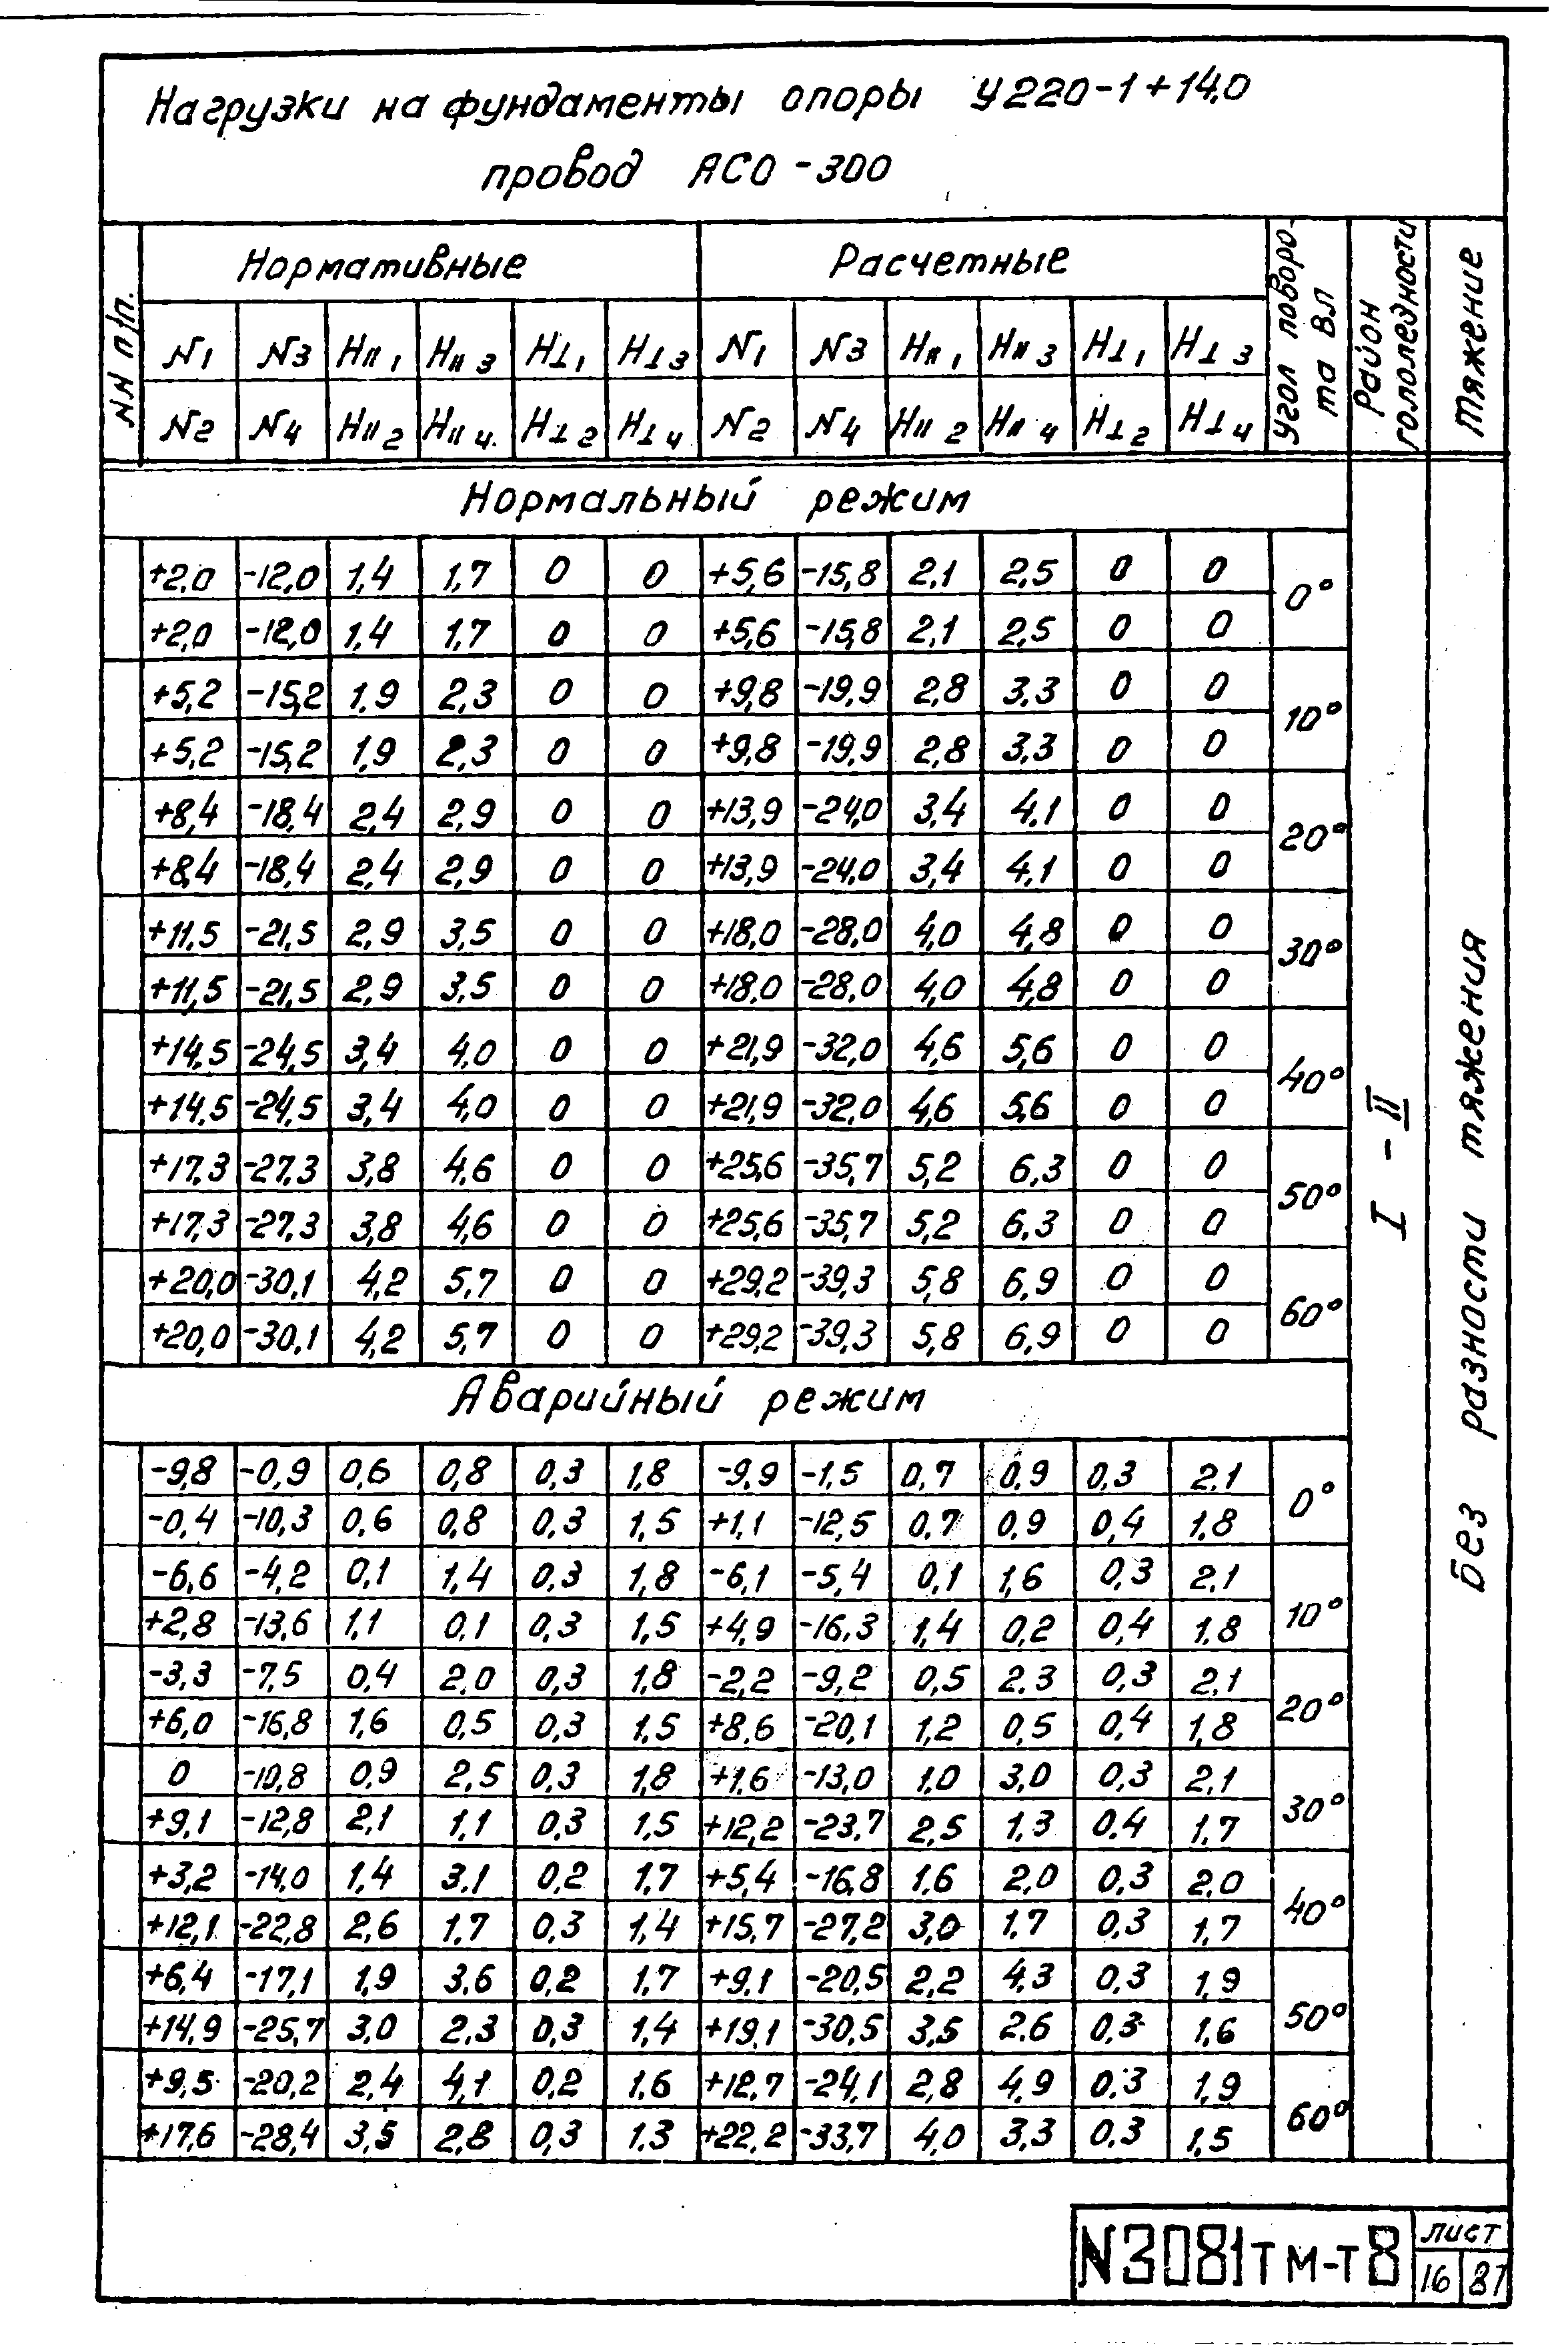 Нагрузки на фундаменты опоры У220-1+14.0
провод АСО-300
NN п/п. Нормативные Расчетные Угол поворота Вл Район гололедности Тяжение
N1 N3 HII1 HII3 H⊥1 H⊥3 N1 N3 HII1 HII3 H⊥1 H⊥3
N2 N4 HII2 HII4. H⊥2 H⊥4 N2 N4 HII2 HII4 H⊥2 H⊥4
Нормальный режим
+2,0 -12,0 1,4 1,7 0 0 +5,6 -15,8 2,1 2,5 0 0 0°
+2,0 -12,0 1,4 1,7 0 0 +5,6 -15,8 2,1 2,5 0 0
+5,2 -15,2 1,9 2,3 0 0 +9,8 -19,9 2,8 3,3 0 0 10°
+5,2 -15,2 1,9 2,3 0 0 +9,8 -19,9 2,8 3,3 0 0
+8,4 -18,4 2,4 2,9 0 0 +13,9 -24,0 3,4 4,1 0 0 20°
+8,4 -18,4 2,4 2,9 0 0 +13,9 -24,0 3,4 4,1 0 0
+11,5 -21,5 2,9 3,5 0 0 +18,0 -28,0 4,0 4,8 0 0 30°
+11,5 -21,5 2,9 3,5 0 0 +18,0 -28,0 4,0 4,8 0 0
+14,5 -24,5 3,4 4,0 0 0 +21,9 -32,0 4,6 5,6 0 0 40°
+14,5 -24,5 3,4 4,0 0 0 +21,9 -32,0 4,6 5,6 0 0
+17,3 -27,3 3,8 4,6 0 0 +25,6 -35,7 5,2 6,3 0 0 50°
+17,3 -27,3 3,8 4,6 0 0 +25,6 -35,7 5,2 6,3 0 0
+20,0 -30,1 4,2 5,7 0 0 +29,2 -39,3 5,8 6,9 0 0 60°
+20,0 -30,1 4,2 5,7 0 0 +29,2 -39,3 5,8 6,9 0 0
Аварийный режим
-9,8 -0,9 0,6 0,8 0,3 1,8 -9,9 -1,5 0,7 0,9 0,3 2,1 0°
-0,4 -10,3 0,6 0,8 0,3 1,5 +1,1 -12,5 0,7 0,9 0,4 1,8
-6,6 -4,2 0,1 1,4 0,3 1,8 -6,1 -5,4 0,1 1,6 0,3 2,1 10°
+2,8 -13,6 1,1 0,1 0,3 1,5 +4,9 -16,3 1,4 0,2 0,4 1,8
-3,3 -7,5 0,4 2,0 0,3 1,8 -2,2 -9,2 0,5 2,3 0,3 2,1 20°
+6,0 -16,8 1,6 0,5 0,3 1,5 +8,6 -20,1 1,2 0,5 0,4 1,8
0 -10,8 0,9 2,5 0,3 1,8 +1,6 -13,0 1,0 3,0 0,3 2,1 30°
+9,1 -12,8 2,1 1,1 0,3 1,5 +12,2 -23,7 2,5 1,3 0,4 1,7
+3,2 -14,0 1,4 3,1 0,2 1,7 +5,4 -16,8 1,6 2,0 0,3 2,0 40°
+12,1 -22,8 2,6 1,7 0,3 1,4 +15,7 -27,2 3,0 1,7 0,3 1,7
+6,4 -17,1 1,9 3,6 0,2 1,7 +9,1 -20,5 2,2 4,3 0,3 1,9 50°
+14,9 -25,7 3,0 2,3 0,3 1,4 +19,1 -30,5 3,5 2,6 0,3 1,6
+9,5 -20,2 2,4 4,1 0,2 1,6 +12,7 -24,1 2,8 4,9 0,3 1,9 60°
+17,6 -28,4 3,5 2,8 0,3 1,3 +22,2 -33,7 4,0 3,3 0,3 1,5
I - II
Без разности тяжения
N3081тм-т8
лист
16 87